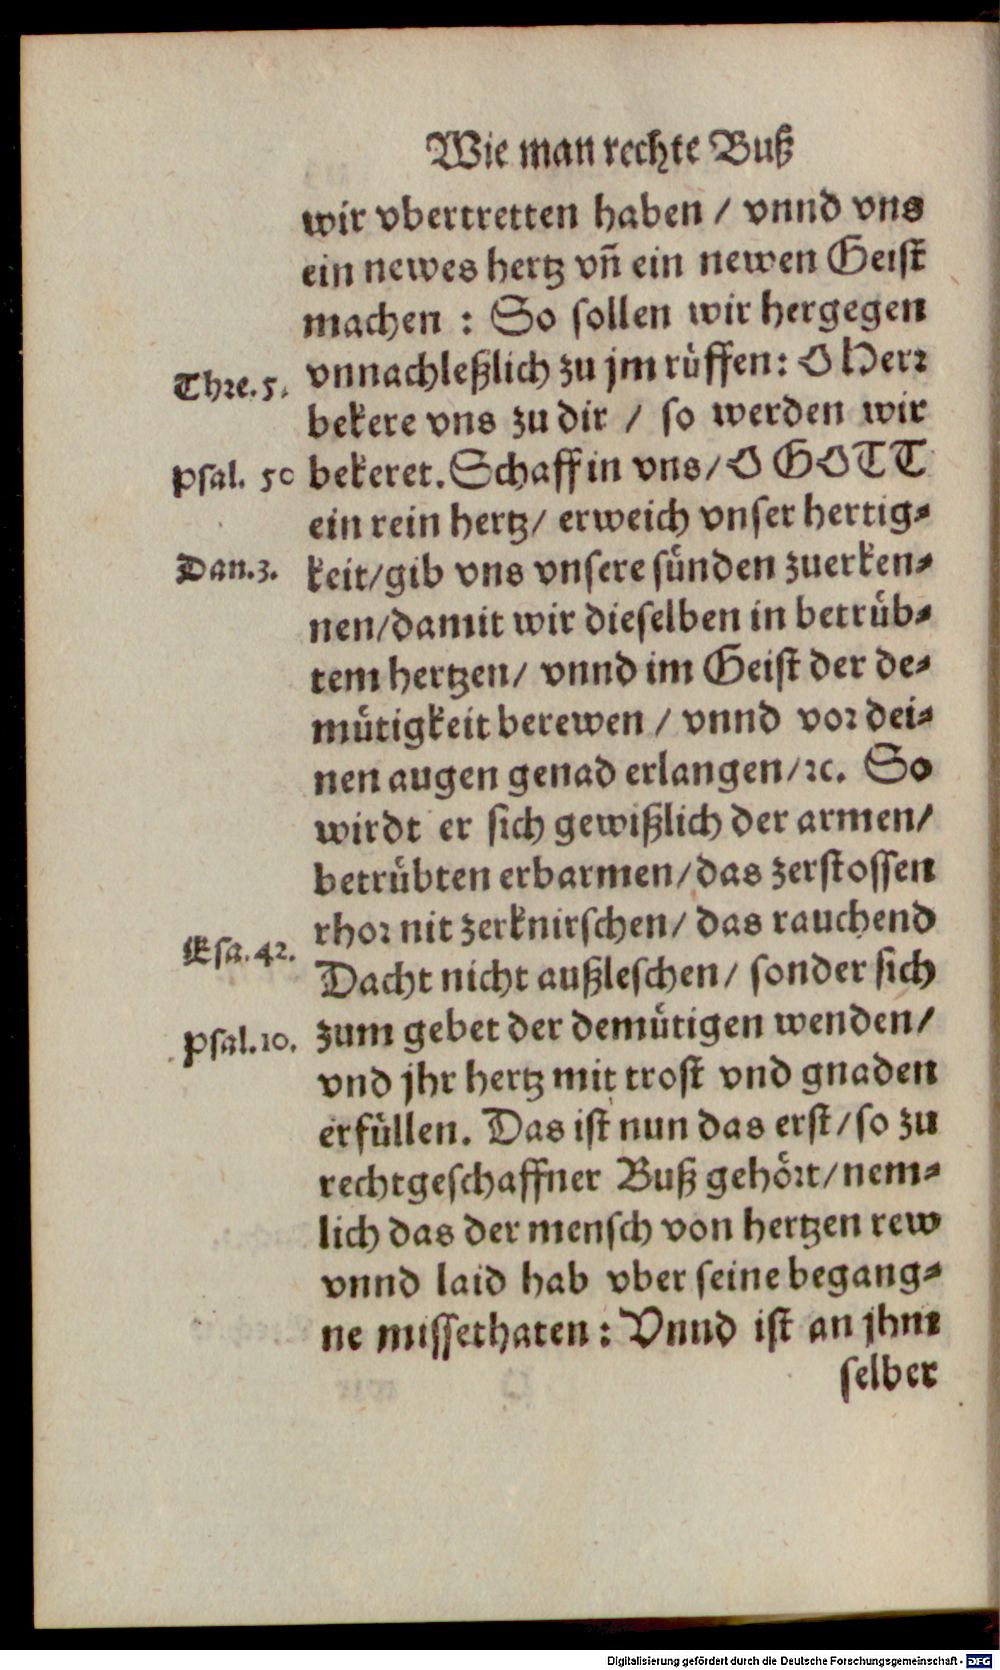 Wie man rechte Buß
wir vbertretten haben / vnnd vns
ein newes hertz vñ ein newen Geist
machen : So sollen wir hergegen
Thre. 5.
vnnachleßlich zu jm rüffen: O Herr
bekere vns zu dir / so werden wir
Psal. 50
bekeret. Schaff in vns / O GOTT
ein rein hertz / erweich vnser hertig⸗
Dan. 3.
keit / gib vns vnsere sünden zuerken⸗
nen / damit wir dieselben in betrüb⸗
tem hertzen / vnnd im Geist der de⸗
mütigkeit berewen / vnnd vor dei⸗
nen augen genad erlangen / ꝛc. So
wirdt er sich gewißlich der armen /
betrübten erbarmen / das zerstossen
rhor nit zerknirschen / das rauchend
Esa. 42.
Dacht nicht außleschen / sonder sich
Psal. 10.
zum gebet der demütigen wenden /
vnd jhr hertz mit trost vnd gnaden
erfüllen. Das ist nun das erst / so zu
rechtgeschaffner Buß gehört / nem⸗
lich das der mensch von hertzen rew
vnnd laid hab vber seine begang⸗
ne missethaten : Vnnd ist an jhm
selber
Digitalisierung gefördert durch die Deutsche Forschungsgemeinschaft - DFG